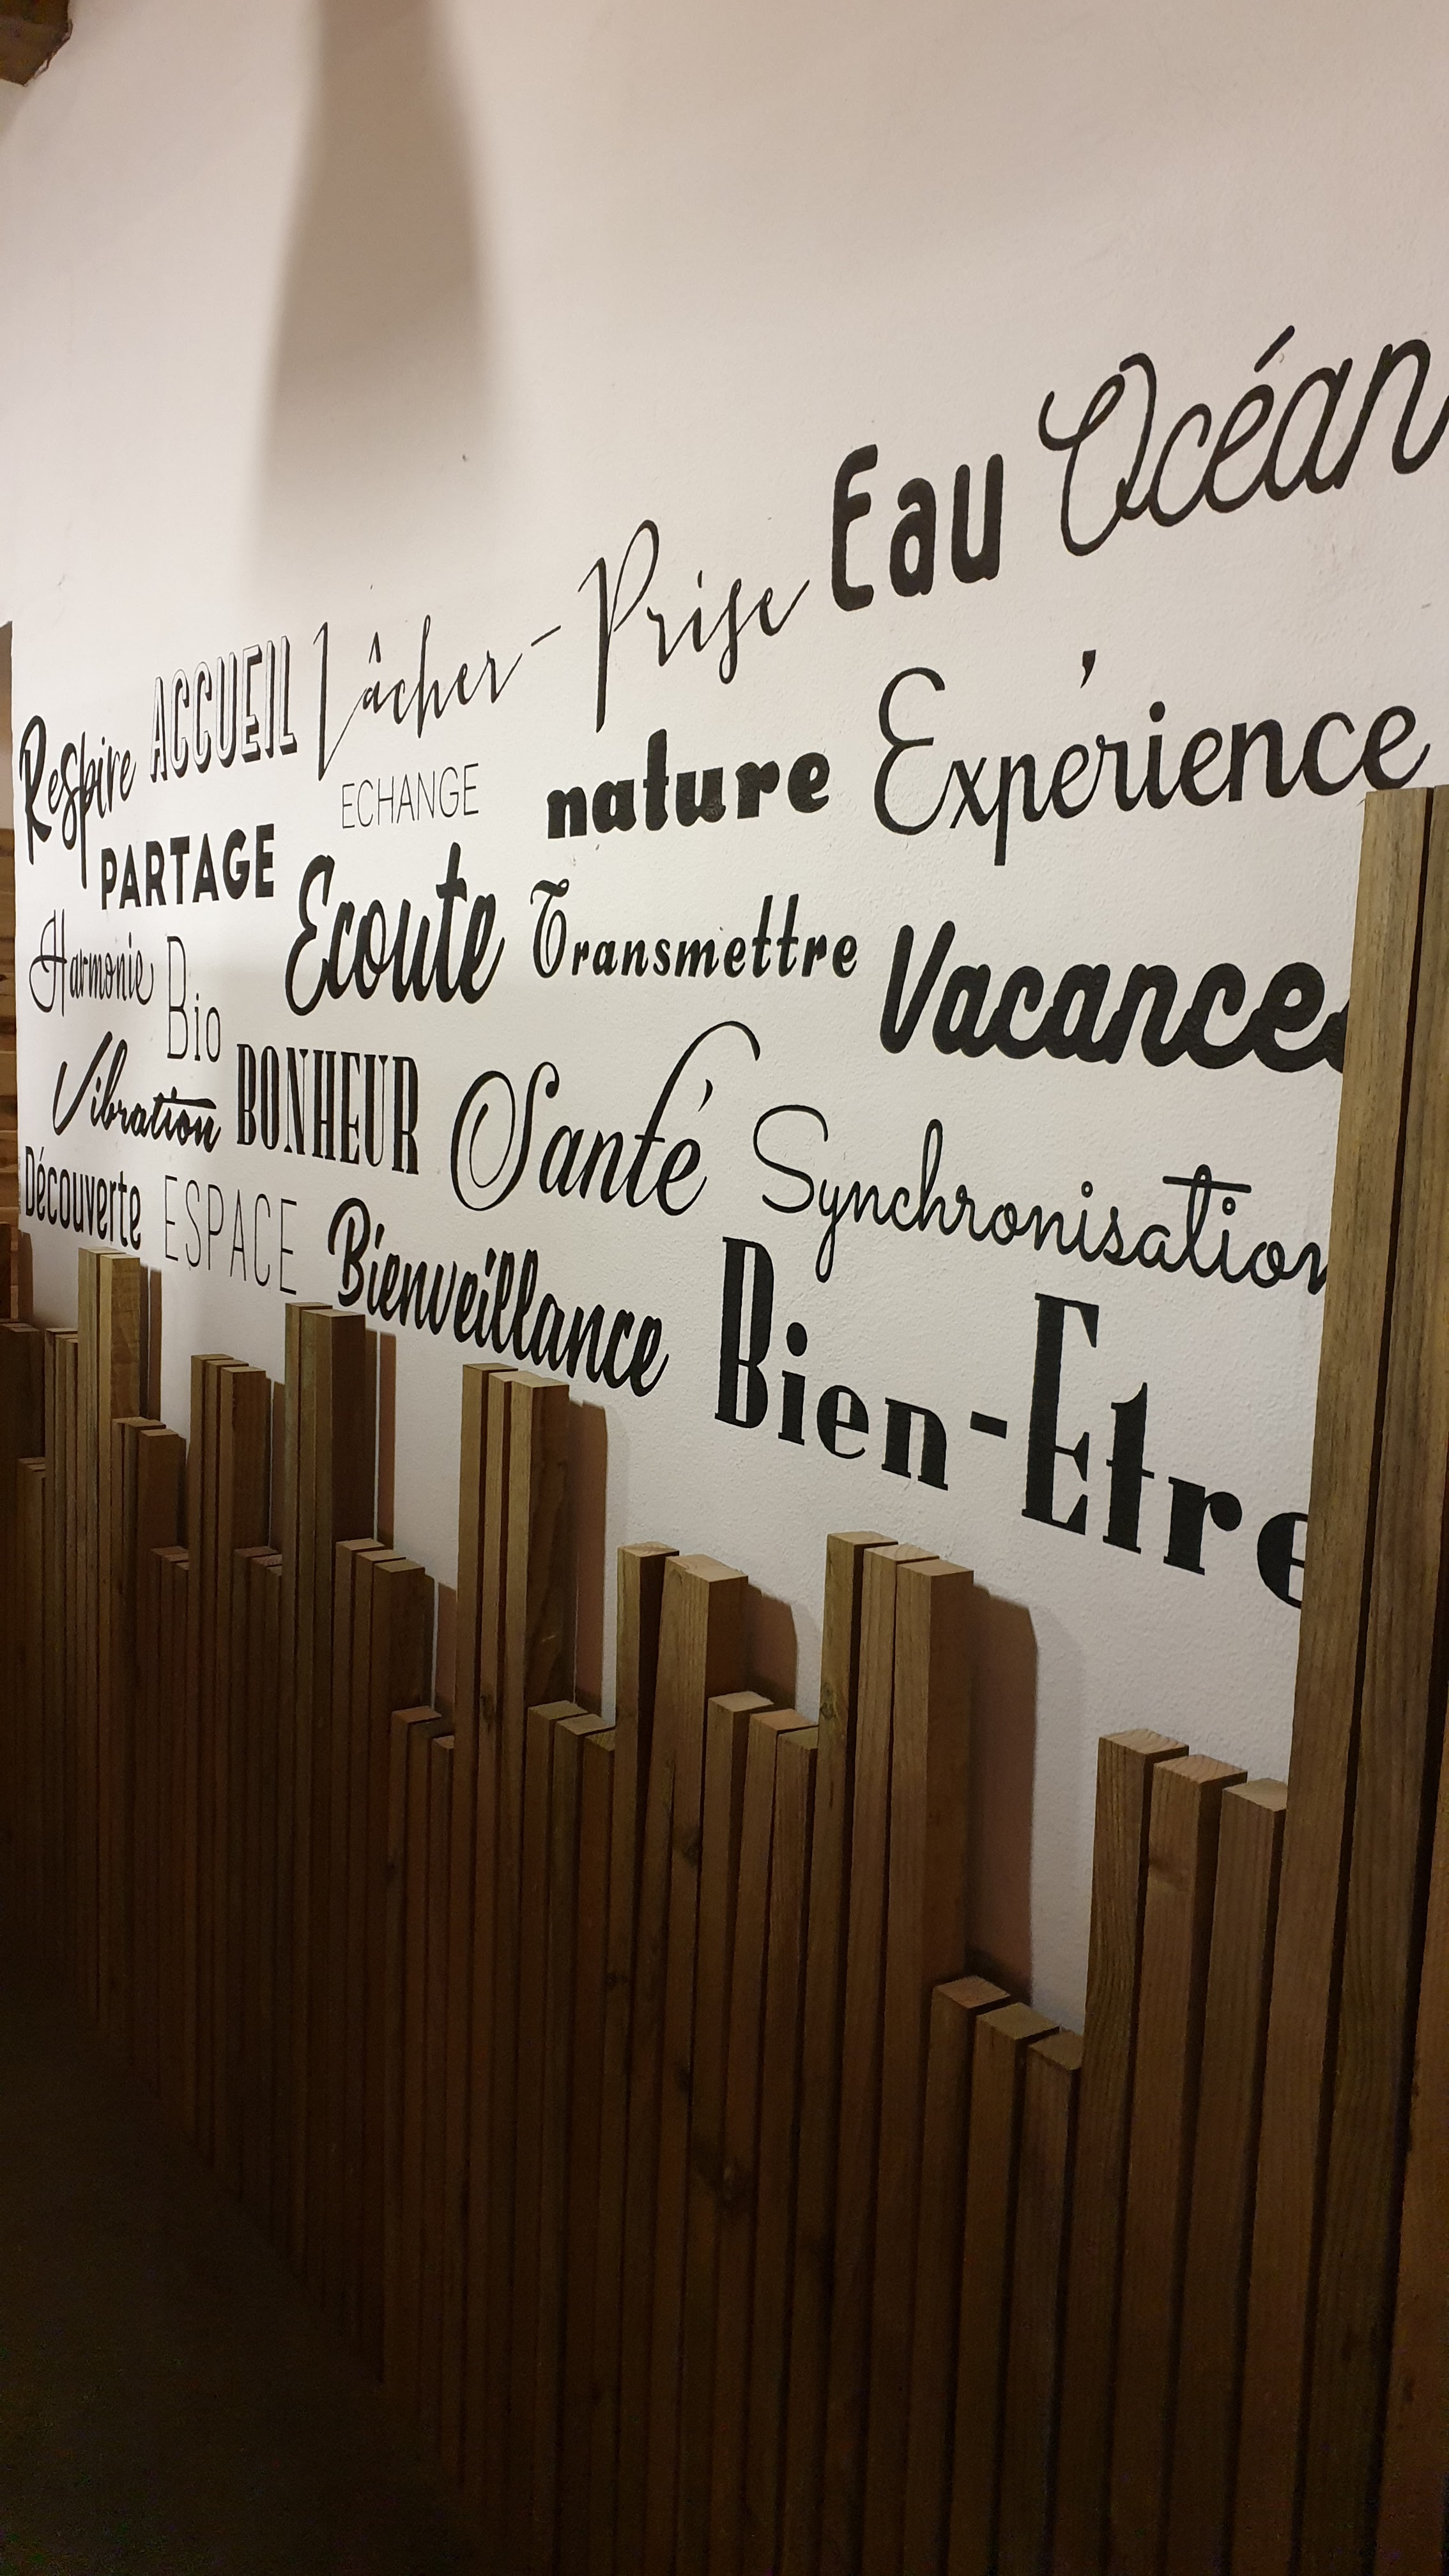 Respire ACCUEIL Lâcher-Prise Eau Océan
PARTAGE ECHANGE nature Expérience
Harmonie Bio Ecoute Transmettre Vacances
Vibration BONHEUR Santé Synchronisation
Découverte ESPACE Bienveillance Bien-Etre